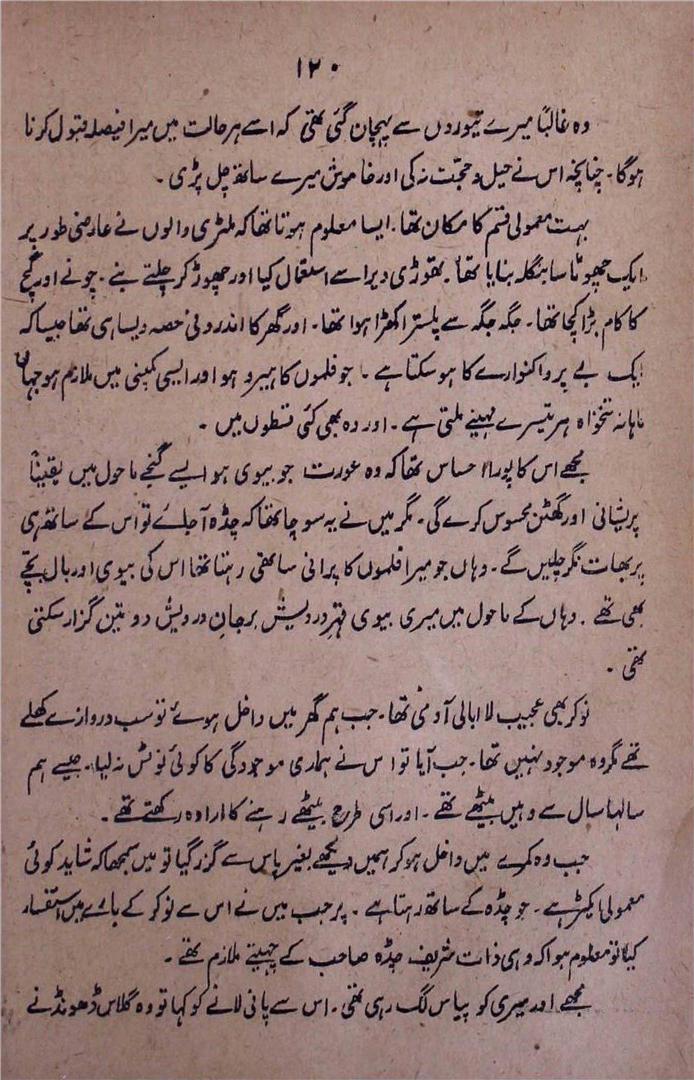 ۱۲۰
وہ غالباً میرے تیوروں سے پہچان گئی تھی کہ اسے ہر حالت میں میرا فیصلہ قبول کرنا
ہوگا۔ چنانچہ اس نے حیل و حجت نہ کی اور خاموش میرے ساتھ چل پڑی۔
بہت معمولی قسم کا مکان تھا۔ ایسا معلوم ہوتا تھا کہ ملٹری والوں نے عارضی طور پر
ایک چھوٹا سا بنگلہ بنایا تھا۔ تھوڑی دیر اسے استعمال کیا اور چھوڑ کر چلتے بنے۔ چونے اور گچ
کا کام بڑا کچا تھا۔ جگہ جگہ سے پلستر اکھڑا ہوا تھا۔ اور گھر کا اندرونی حصہ ویسا ہی تھا جیسا کہ
ایک بے پروا کنوارے کا ہو سکتا ہے۔ جو فلموں کا ہیرو ہو اور ایسی کمپنی میں ملازم ہو جہاں
ماہانہ تنخواہ ہر تیسرے مہینے ملتی ہے۔ اور وہ بھی کئی قسطوں میں۔
مجھے اس کا پورا احساس تھا کہ وہ عورت جو بیوی ہو ایسے گنجے ماحول میں یقیناً
پریشانی اور گھٹن محسوس کرے گی۔ مگر میں نے یہ سوچا تھا کہ چڈہ آ جائے تو اس کے ساتھ ہی
پربھات نگر چلیں گے۔ وہاں جو میرا فلموں کا پرانی ساتھی رہتا تھا اس کی بیوی اور بال بچے
بھی تھے۔ وہاں کے ماحول میں میری بیوی قہر درویش برجان درویش دو تین گزار سکتی
تھی۔
نوکر بھی عجیب لاابالی آدمی تھا۔ جب ہم گھر میں داخل ہوئے تو سب دروازے کھلے
تھے مگر وہ موجود نہیں تھا۔ جب آیا تو اس نے ہماری موجودگی کا کوئی نوٹس نہ لیا۔ جیسے ہم
سالہا سال سے وہیں بیٹھے تھے۔ اور اسی طرح بیٹھے رہنے کا ارادہ رکھتے تھے۔
جب وہ کمرے میں داخل ہو کر ہمیں دیکھے بغیر پاس سے گزر گیا تو میں سمجھا کہ شاید کوئی
معمولی ایکٹر ہے۔ جو چڈہ کے ساتھ رہتا ہے۔ پر جب میں نے اس سے نوکر کے بارے میں استفسار
کیا تو معلوم ہوا کہ وہی ذات شریف چڈہ صاحب کے چہیتے ملازم تھے۔
مجھے اور میری کو پیاس لگ رہی تھی۔ اس سے پانی لانے کو کہا تو وہ گلاس ڈھونڈنے